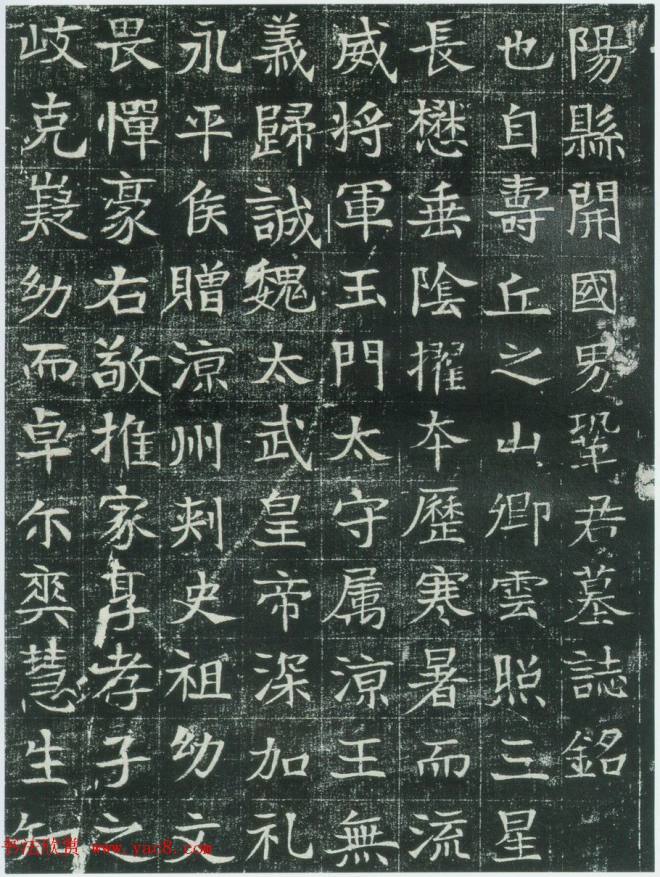 陽縣開國男鞏君墓誌銘
也自壽丘之山卿雲照三星
長懋垂陰擢夲歷寒暑而流
威将軍玉門太守属涼王無
義歸誠魏太武皇帝深加礼
永平侯贈涼州刺史祖幼文
畏憚豪右敬推家享孝子之
岐克嶷幼而卓尔奕慧生
书法欣赏 www.yac8.com